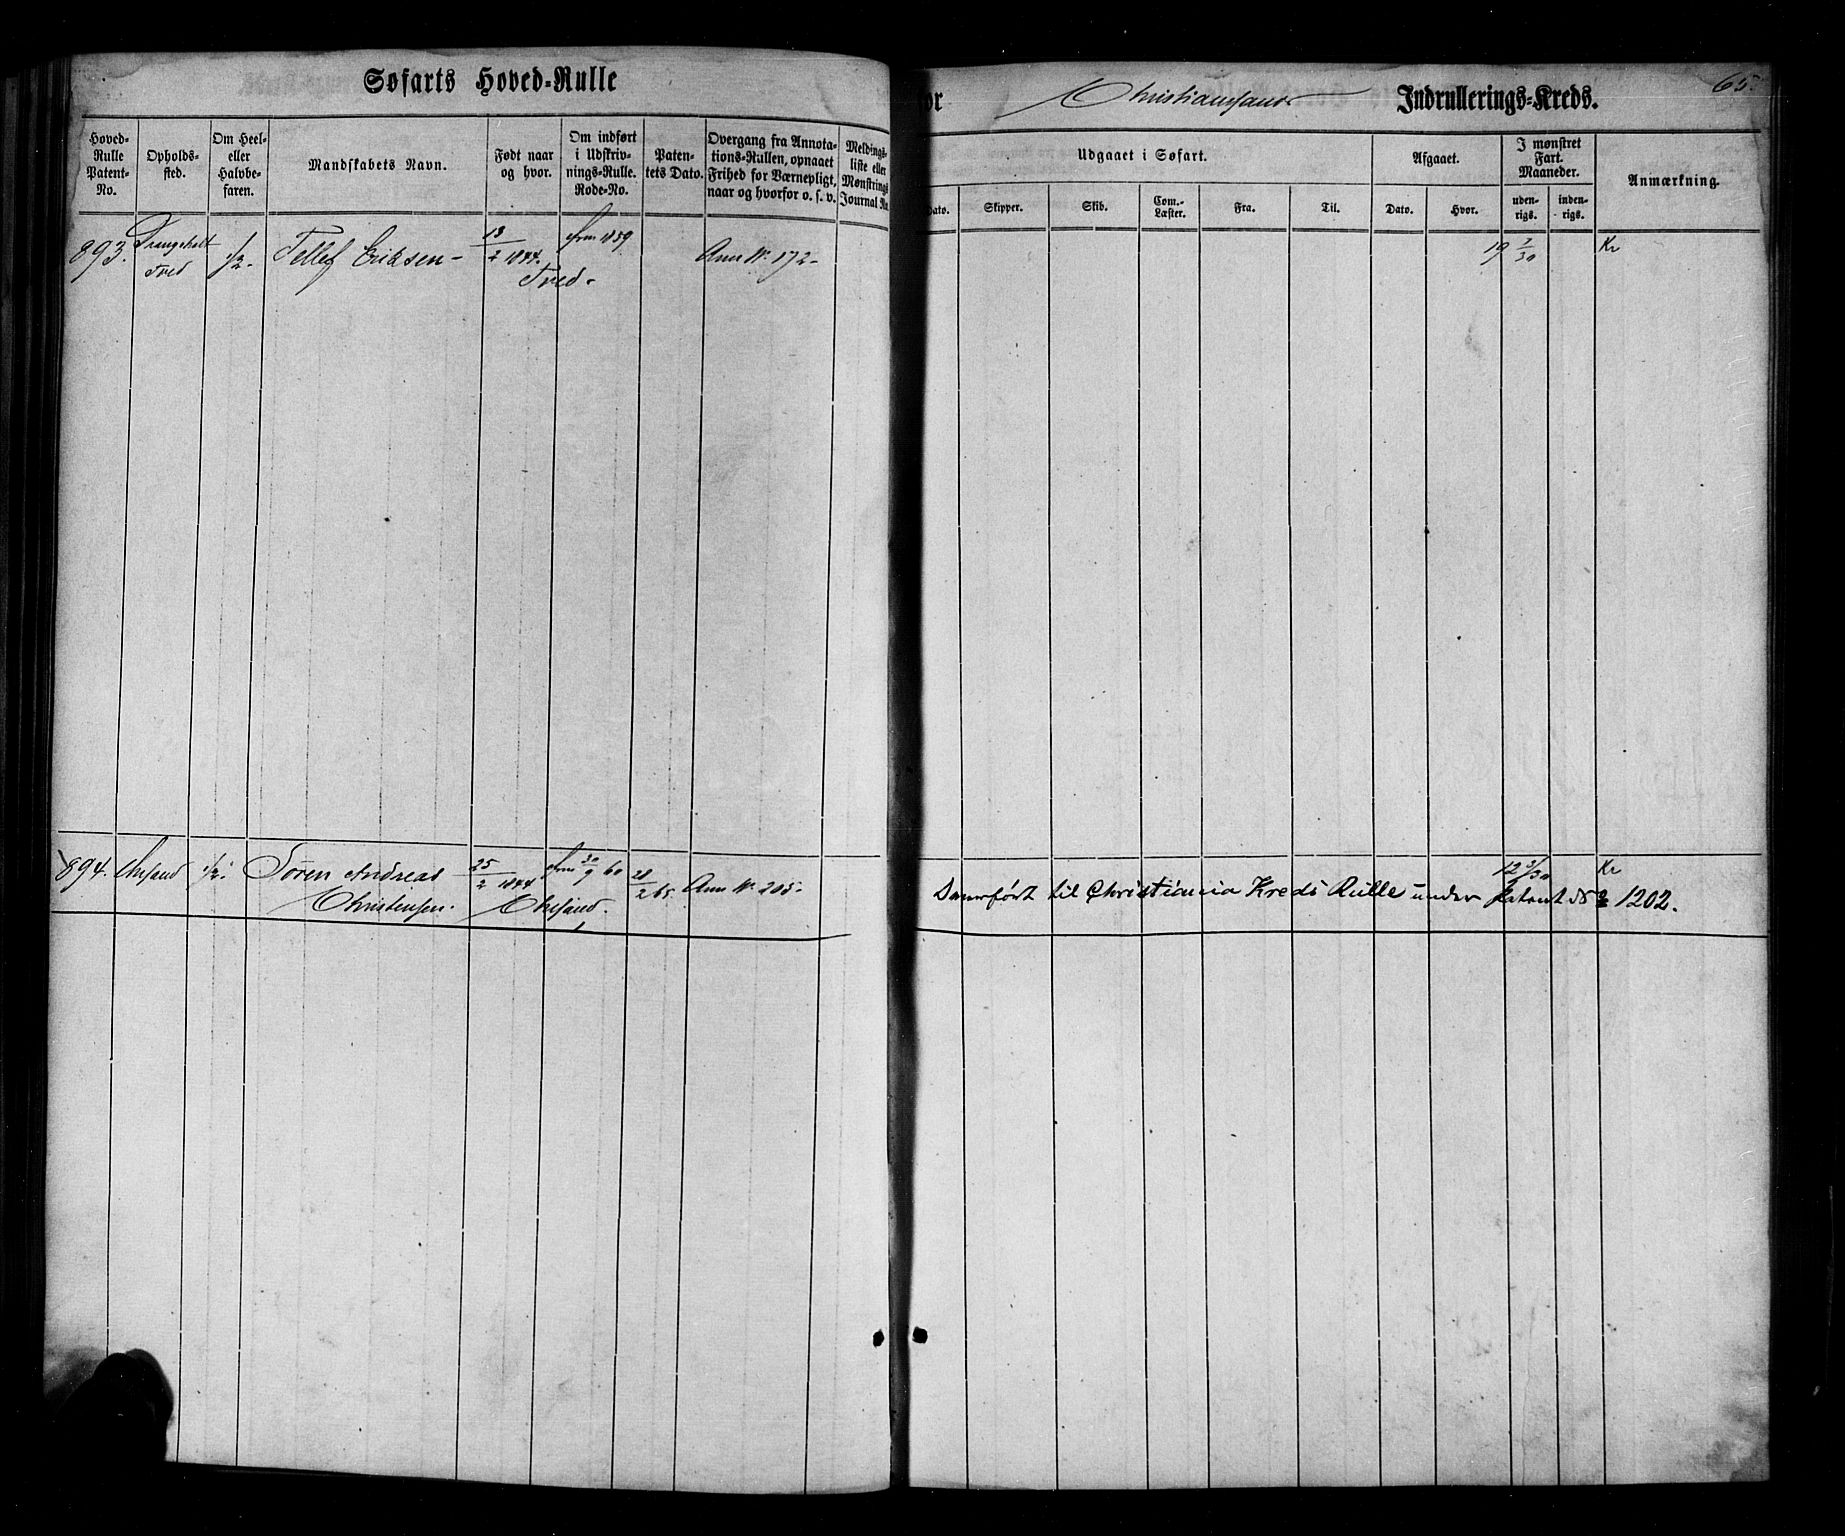 Søfarts Hoved-Rulle
Hoved-Rulle Patent-No.
Opholds-sted.
Om Heel- eller Halvbe-faren.
Mandskabets Navn.
Født naar og hvor.
Om indført i Udskriv-nings-Rulle. Rode-No.
Paten-tets Dato.
Overgang fra Annota-tions-Rullen, opnaaet Frihed for Værnepligt, naar og hvorfor o. s. v.
Meldings-liste eller Mønstrings Journal No.
893.
Tved
1/2.
Tellef Eriksen
13/2 1844.
Tved.
1859
Ann No. 172
894. Chrsand 1/2. Søren Andreas
Christensen.
25/2 1844
Chrsand.
30/9 60
28/2 65.
Ann No. 205
for Christianssands Indrullerings-Kreds.
65.
Udgaaet i Søfart.
Afgaaet.
I mønstret Fart. Maaneder.
Anmærkning.
Dato.
Skipper.
Skib.
Com.-Læster.
Fra.
Til.
Dato.
Hvor.
uden-rigs.
inden-rigs.
19 7/30
Kr
12 3/30
Kr
Overført til Christiania Kreds Rulle under Patent No 1202.